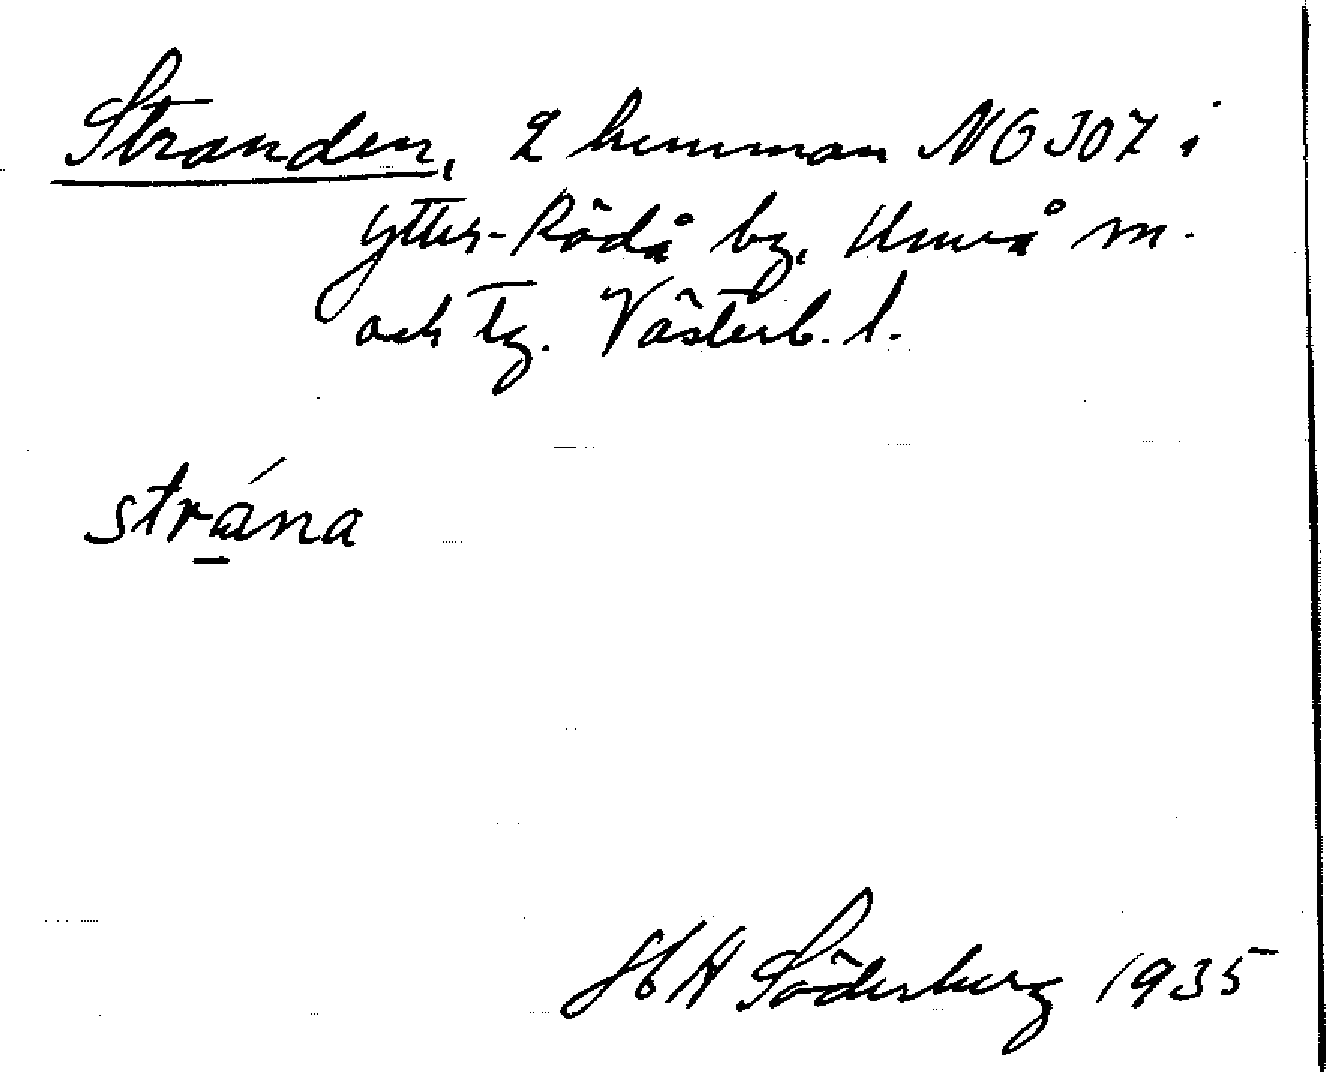 Stranden, 2 hemman NG 307 i
Ytter-Rödå by, Umeå m.
och tg. Västerb. l.
strána
H H Söderberg 1935